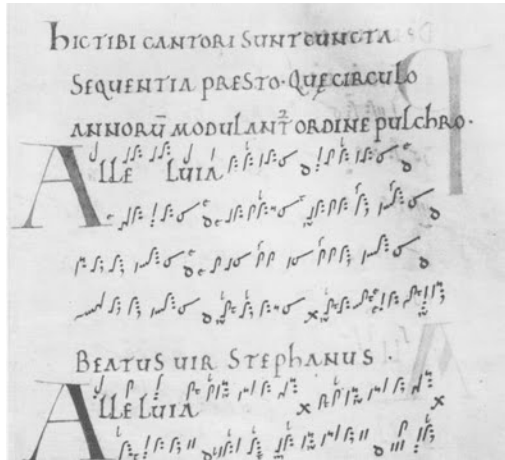 hIC TIBI CANTORI SUNT CUNCTA
SEQUENTIA PRESTO· QUĘ CIRCULO
ANNORŪ MODULANT᷑ ORDINE PULCHRO·
ALLELUIA
BEATUS UIR STEPHANUS ·
ALLELUIA